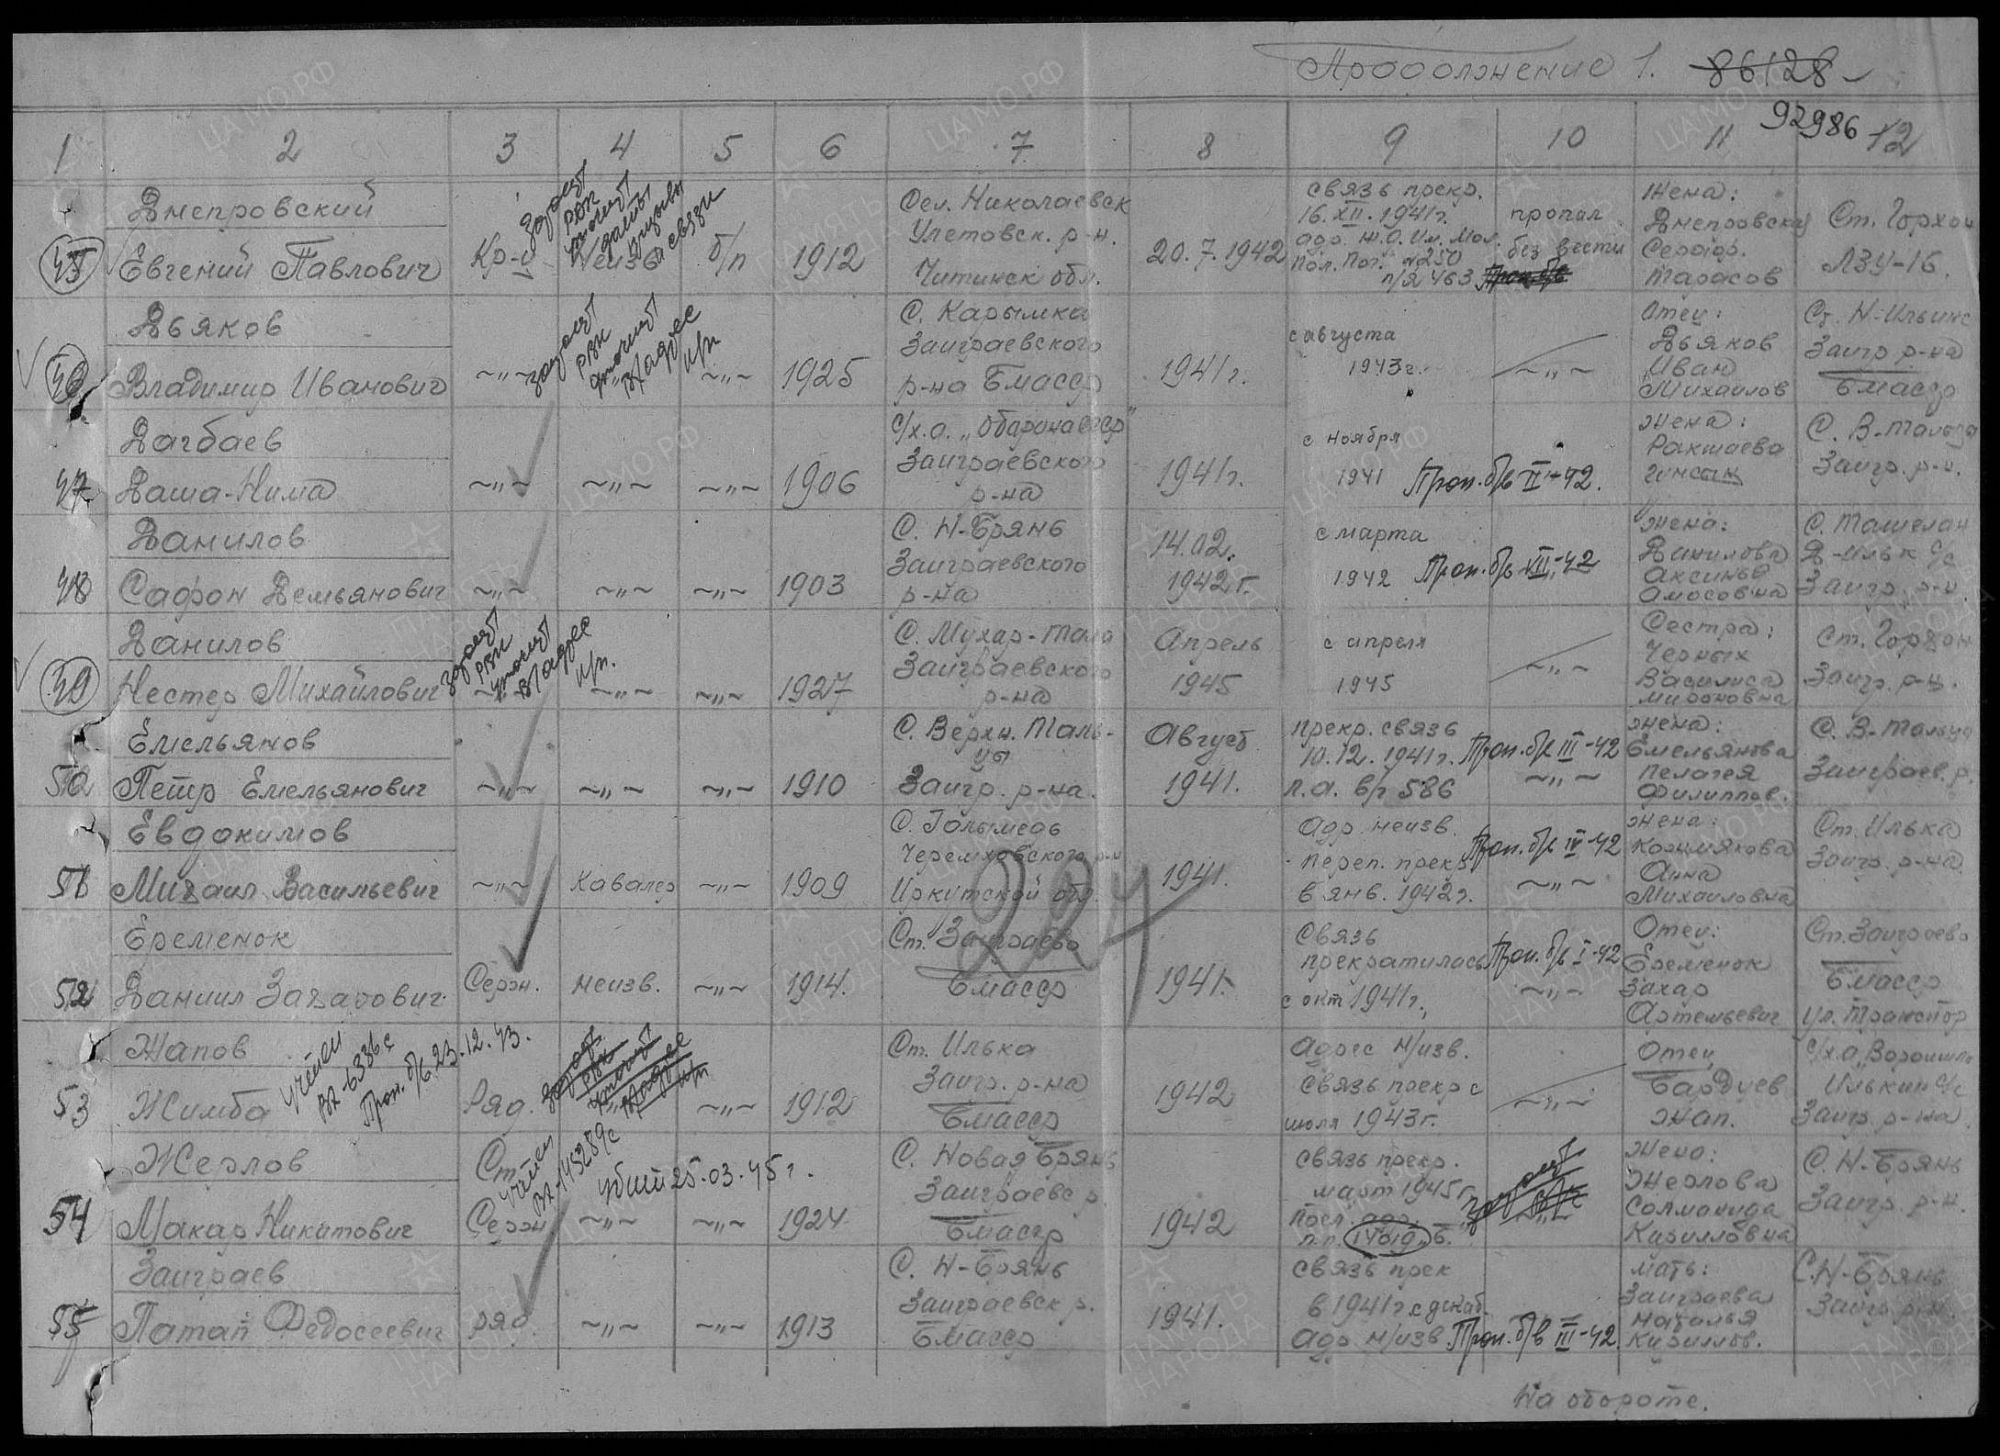 Продолжение 1. 86128
92986
1 2 3 4 5 6 7 8 9 10 11 12
45 Днепровский
Евгений Павлович
Кр-ц
Неизв
б/п
1912
Сел. Николаевск
Улетовск. р-н.
Читинск обл.
20.7.1942
связь прекр.
16.XII.1941г.
адр. ж.д.
Пол. Поч. №250
п/я 463
пропал
без вести
Жена:
Днепровская
Серафр.
Тарасов
Ст. Горхон
ЛЗУ-16.
46 Дьяков
Владимир Иванович
~"~
запрет
РВК
уточнит
в/адрес
н/п
~"~
1925
С. Карымка
Заиграевского
р-на БМАССР
1941г.
с августа
1943г.
~"~
Отец:
Дьяков
Иван
Михайлов
Ст. Н-Ильинс
Заигр р-на
БМАССР
47 Дагбаев
Даша-Нима
~"~
~"~
~"~
1906
с/х.а. „Оборона СССР"
Заиграевского
р-на
1941г.
с ноября
1941
Проп. б/в II-42.
Жена:
Ракшаева
С. В-Тальца
Заигр. р-н.
48 Данилов
Сафон Демьянович
~"~
~"~
~"~
1903
С. Н-Брянь
Заиграевского
р-на
14.02.
1942г.
с марта
1942
Проп. б/в VIII-42
Жена:
Данилова
Аксинья
Амосовна
С. Ташелан
Заигр. р-н.
49 Данилов
Нестер Михайлович
~"~
~"~
1927
С. Мухар-Тала
Заиграевского
р-на
Апрель
1945
с апреля
1945
~"~
Сестра:
Черных
Василиса
Мироновна
Ст. Горхон
Заигр. р-н.
50 Емельянов
Петр Емельянович
~"~
~"~
~"~
1910
С. Верхн. Таль-
цы
Заигр. р-на.
Август
1941.
прекр. связь
10.12.1941г.
п.а. в/г 586
Проп. б/в III-42
~"~
жена:
Емельянова
Пелагея
Филиппов.
С. В-Тальца
Заиграев. р.
51 Евдокимов
Михаил Васильевич
~"~
Кавалер
~"~
1909
С. Голуметь
Черемховского р-н
Иркутской обл.
1941.
Адр. неизв.
переп. прекр
в янв. 1942г.
Проп. б/в IV-42
~"~
жена:
Кожмякова
Анна
Михайловна
Ст. Илька
Заигр. р-на.
52 Еременок
Даниил Захарович
Серж.
неизв.
~"~
1914.
Ст. Заиграево
БМАССР
1941.
Связь
прекратилась
с окт 1941г.
Проп. б/в I-42
~"~
Отец:
Еременок
Захар
Артемьевич
Ст. Заиграево
БМАССР
ул. Транспор
53 Жапов
Жимба
учтен
вх-6336с
Проп. б/в 23.12.43.
Ряд.
~"~
1912
Ст. Илька
Заигр. р-на
БМАССР
1942
Адрес н/изв.
связь прекр с
июля 1943г.
~"~
Отец
Бардуев
Жап.
с/х.а. Ворошило
Илькин с/с
Заигр. р-на.
54 Жерлов
Макар Никитович
Ст.
Серж
учтен
вх-145289с
убит 25.03.45г.
~"~
~"~
1924
С. Новая Брянь
Заиграевс р.
БМАССР
1942
связь прекр.
март 1945г.
посл. адр.
Жена:
Жерлова
Соломонида
Кирилловна
С. Н-Брянь
Заигр. р-н.
55 Заиграев
Патап Федосеевич
ряд.
~"~
~"~
1913
С. Н-Брянь
Заиграевск р.
БМАССР
1941.
Связь прек
в 1941г. с декаб.
адр н/изв
Проп. б/в III-42
мать:
Заиграева
Наталья
Кириллов.
С. Н-Брянь
Заигр. р-н.
На обороте.